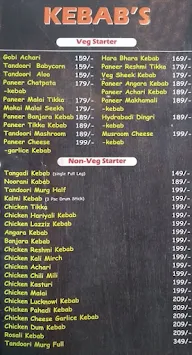 KEBAB'S
Veg Starter
Gobi Achari 159/-
Tandoori Babycorn 159/-
Tandoori Aloo 159/-
Paneer Chatpata 179/-
-kebab
Paneer Malai Tikka 179/-
Makai Malai Seekh 179/-
Paneer Banjara Kebab 189/-
Paneer Tikka Kebab 189/-
Tandoori Mashroom 189/-
Paneer Cheese 199/-
-garlice Kebab
Hara Bhara Kebab 169/-
Paneer Reshmi Tikka 179/-
Veg Sheek Kebab 179/-
Paneer Angara Kebab 189/-
Paneer Achari Kebab 189/-
Paneer Makhamali 189/-
-kebab
Hydrabadi Dingri 189/-
-kebab
Musroom Cheese 199/-
-kebab
Non-Veg Starter
Tangadi Kebab (single Full Leg)
Noorani Kebab
Tandoori Murg Half
Kalmi Kebab (3 Pac Drum Stick)
Chicken Tikka
Chicken Hariyali Kebab
Chicken Lazziz Kebab
Angara Kebab
Banjara Kebab
Chicken Reshmi Kebab 199/-
Chicken Kali Mirch 199/-
Chicken Achari 199/-
Chicken Chili Mili 199/-
Chicken Kasturi 199/-
Chicken Malai 199/-
Chicken Lucknowi Kebab 209/-
Chicken Pahadi Kebab 209/-
Chicken Cheese Garlice Kebab 209/-
Chicken Dum Kebab 209/-
Rosali Kebab 209/-
Tandoori Murg Full 349/-